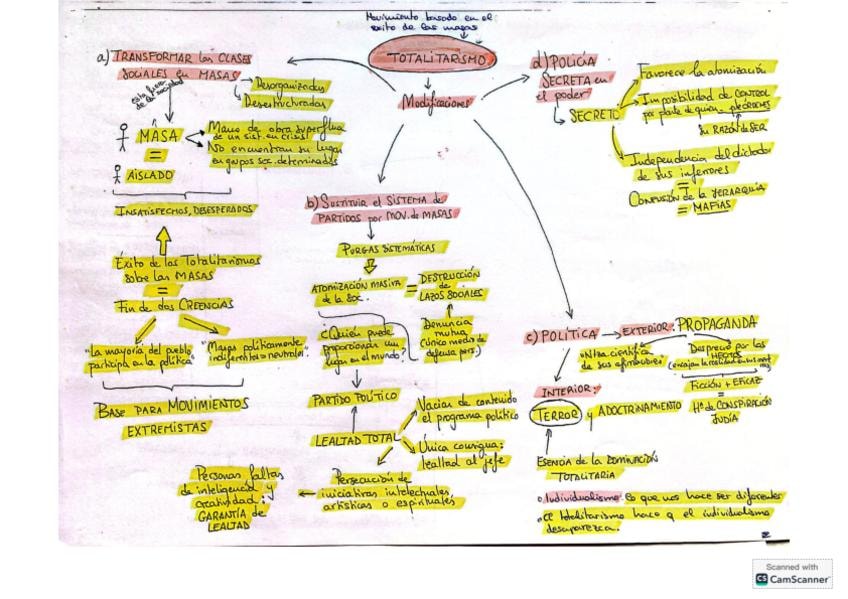 Movimiento basado en el
éxito de las masas
TOTALITARISMO
Modificaciones
a) TRANSFORMAR las CLASES
SOCIALES en MASAS
Desorganizadas
Desestructuradas
MASA
=
AISLADO
Mano de obra superflua
de un sist. en crisis
No encuentran su lugar
en grupos soc. determinados
INSATISFECHOS, DESESPERADOS
Éxito de los Totalitarismos
sobre las MASAS
=
Fin de dos CREENCIAS
"La mayoría del pueblo
participa en la política"
"Masas políticamente
indiferentes = neutrales"
BASE PARA MOVIMIENTOS
EXTREMISTAS
b) SUSTITUIR el SISTEMA de
PARTIDOS por MOV. de MASAS
PURGAS SISTEMÁTICAS
ATOMIZACIÓN MASIVA
de la SOC.
=
DESTRUCCIÓN
de
LAZOS SOCIALES
Denuncia
mutua
(único medio de
defensa pers.)
¿Quién puede
proporcionar un
lugar en el mundo?
PARTIDO POLÍTICO
LEALTAD TOTAL
Vaciar de contenido
el programa político
Única consigna:
lealtad al jefe
Persecución de
iniciativas intelectuales
artísticas o espirituales
Personas faltas
de inteligencia y
creatividad:
GARANTÍA de
LEALTAD
c) POLÍTICA
EXTERIOR: PROPAGANDA
de sus afirmaciones
Desprecio por los
HECHOS
Ficción + EFICAZ
=
Hª de CONSPIRACIÓN
JUDÍA
INTERIOR:
TERROR y ADOCTRINAMIENTO
ESENCIA de la DOMINACIÓN
TOTALITARIA
Individualismo: lo que nos hace ser diferentes
el totalitarismo hace q el individualismo
desaparezca.
d) POLICÍA
SECRETA en
el poder
SECRETO
Favorece la atomización
Imposibilidad de CONTROL
por parte de quien
su RAZÓN de SER
Independencia del dictador
de sus inferiores
=
CONFUSIÓN de la JERARQUÍA
= MAFIAS
2
Scanned with
CS CamScanner